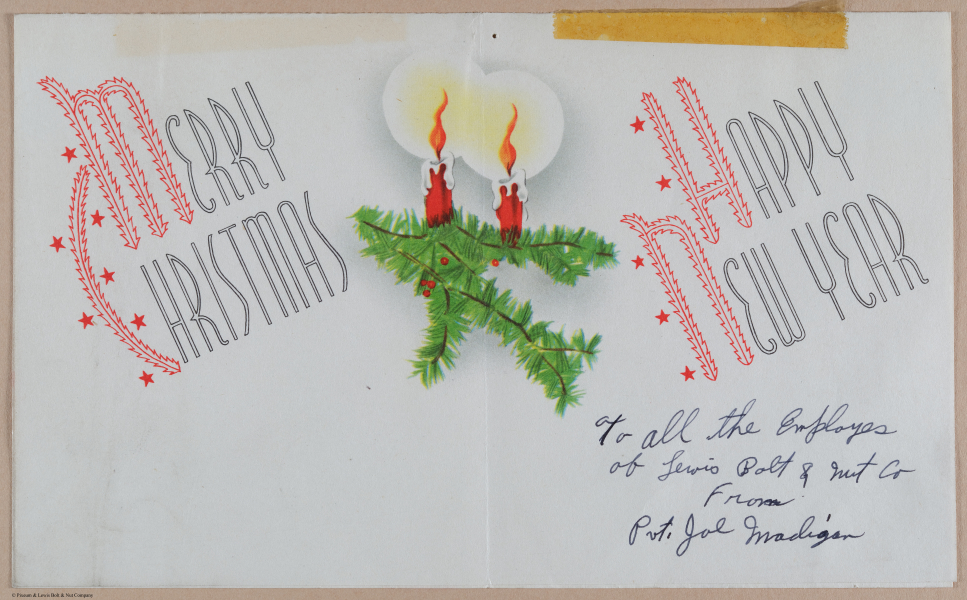 MERRY
CHRISTMAS
HAPPY
NEW YEAR
To all the Employes
of Lewis Bolt & Nut Co
From
Pvt. Joe Madigan
© Pinson & Lewis Bolt & Nut Company